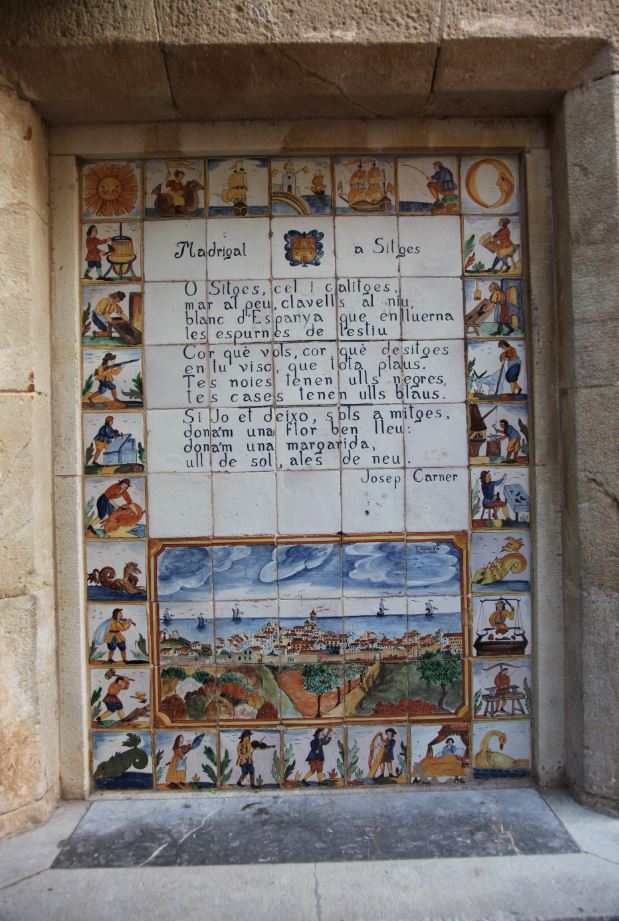 Madrigal a Sitges
O Sitges, cel i calitges,
mar al peu, clavells al niu,
blanc d'Espanya que enlluerna
les espurnes de l'estiu
Cor què vols, cor què desitges
en tu viso, que tota plaus.
Tes noies tenen ulls negres,
tes cases tenen ulls blaus.
Si Jo et deixo, sols a mitges,
dona'm una flor ben lleu:
dona'm una margarida,
ull de sol, ales de neu.
Josep Carner